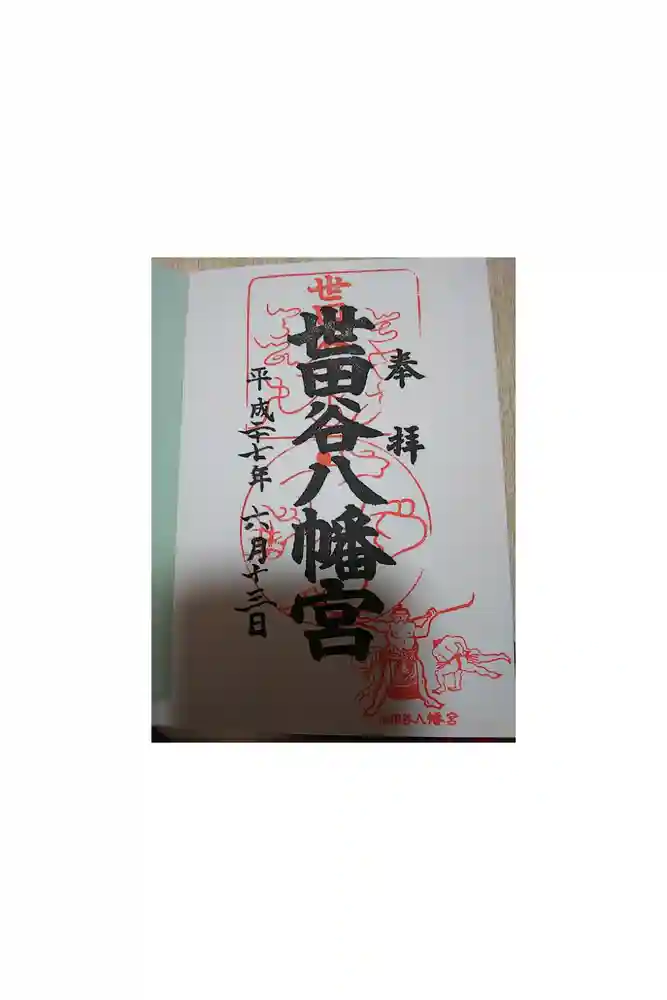 奉拝
世田谷八幡宮
平成二十七年 六月十三日
世
田谷八幡宮